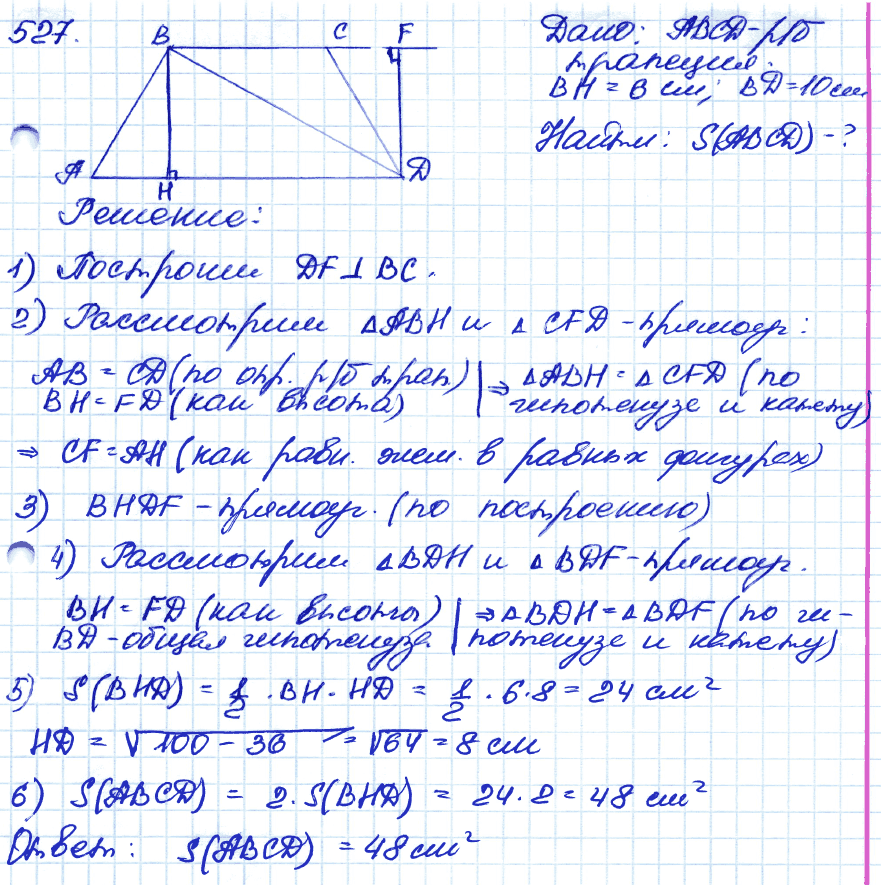 527.
B C F
A H D
Дано: ABCD - р/б
трапеция.
BH = 6 см; BD = 10 см
Найти: S(ABCD) - ?
Решение:
1) Построим DF ⊥ BC.
2) Рассмотрим △ABH и △CFD - прямоуг:
AB = CD (по опр. р/б трап) | ⇒ △ABH = △CFD (по
BH = FD (как высота) | гипотенузе и катету)
⇒ CF = AH (как равн. элем. в равных фигурах)
3) BHDF - прямоуг. (по построению)
4) Рассмотрим △BDH и △BDF - прямоуг.
BH = FD (как высоты) | ⇒ △BDH = △BDF (по ги-
BD - общая гипотенуза | потенузе и катету)
5) S(BHD) = 1/2 · BH · HD = 1/2 · 6 · 8 = 24 см²
HD = √100 - 36 = √64 = 8 см
6) S(ABCD) = 2 · S(BHD) = 24 · 2 = 48 см²
Ответ: S(ABCD) = 48 см²